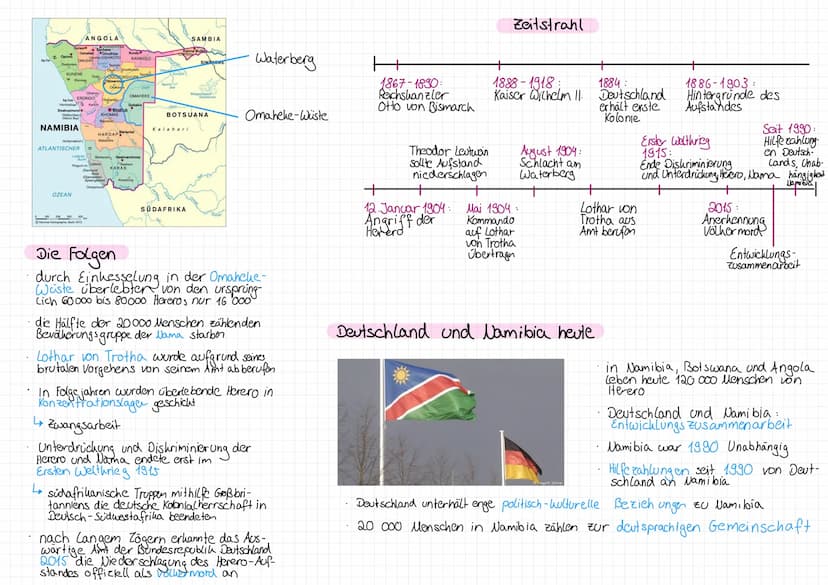 ANGOLA
SAMBIA
NAMIBIA
BOTSUANA
Kalahari
ATLANTISCHER
OZEAN
SÜDAFRIKA
Waterberg
Omaheke-Wüste
Zeitstrahl
1867-1890:
Reichskanzler
Otto von Bismarck
1888-1918:
Kaiser Wilhelm II.
1884:
Deutschland
erhält erste
Kolonie
1886-1903:
Hintergründe des
Aufstandes
Theodor Leutwein
sollte Aufstand
niederschlagen
August 1904:
Schlacht am
Waterberg
Erster Weltkrieg
1915:
Ende Diskriminierung
und Unterdrückung Herero, Nama
Seit 1990:
Hilfezahlung-
en Deutsch-
lands, Unab-
hängigkeit
Namibias
12. Januar 1904:
Angriff der
Herero
Mai 1904:
Kommando
auf Lothar
von Trotha
übertragen
Lothar von
Trotha aus
Amt berufen
2015:
Anerkennung
Völkermord
Entwicklungs-
zusammenarbeit
Die Folgen
· durch Einkesselung in der Omaheke-
Wüste überlebten von den ursprüng-
lich 60 000 bis 80 000 Hereros nur 16 000
· die Hälfte der 20 000 Menschen zählenden
Bevölkerungsgruppe der Nama starben
· Lothar von Trotha wurde aufgrund seines
brutalen Vorgehens von seinem Amt abberufen
· In Folgejahren wurden überlebende Herero in
Konzentrationslager geschickt
↳ Zwangsarbeit
· Unterdrückung und Diskriminierung der
Herero und Nama endete erst im
Ersten Weltkrieg 1915
↳ südafrikanische Truppen mithilfe Großbri-
tanniens die deutsche Kolonialherrschaft in
Deutsch-Südwestafrika beendeten
· nach langem Zögern erkannte das Aus-
wärtige Amt der Bundesrepublik Deutschland
2015 die Niederschlagung des Herero-Auf-
standes officiell als Völkermord an
Deutschland und Namibia heute
· in Namibia, Botswana und Angola
leben heute 120 000 Menschen von
Herero
· Deutschland und Namibia:
Entwicklungszusammenarbeit
· Namibia war 1990 Unabhängig
· Hilfezahlungen seit 1990 von Deut-
schland an Namibia
· Deutschland unterhält enge politisch-kulturelle Beziehungen zu Namibia
· 20 000 Menschen in Namibia zählen zur deutsprachigen Gemeinschaft